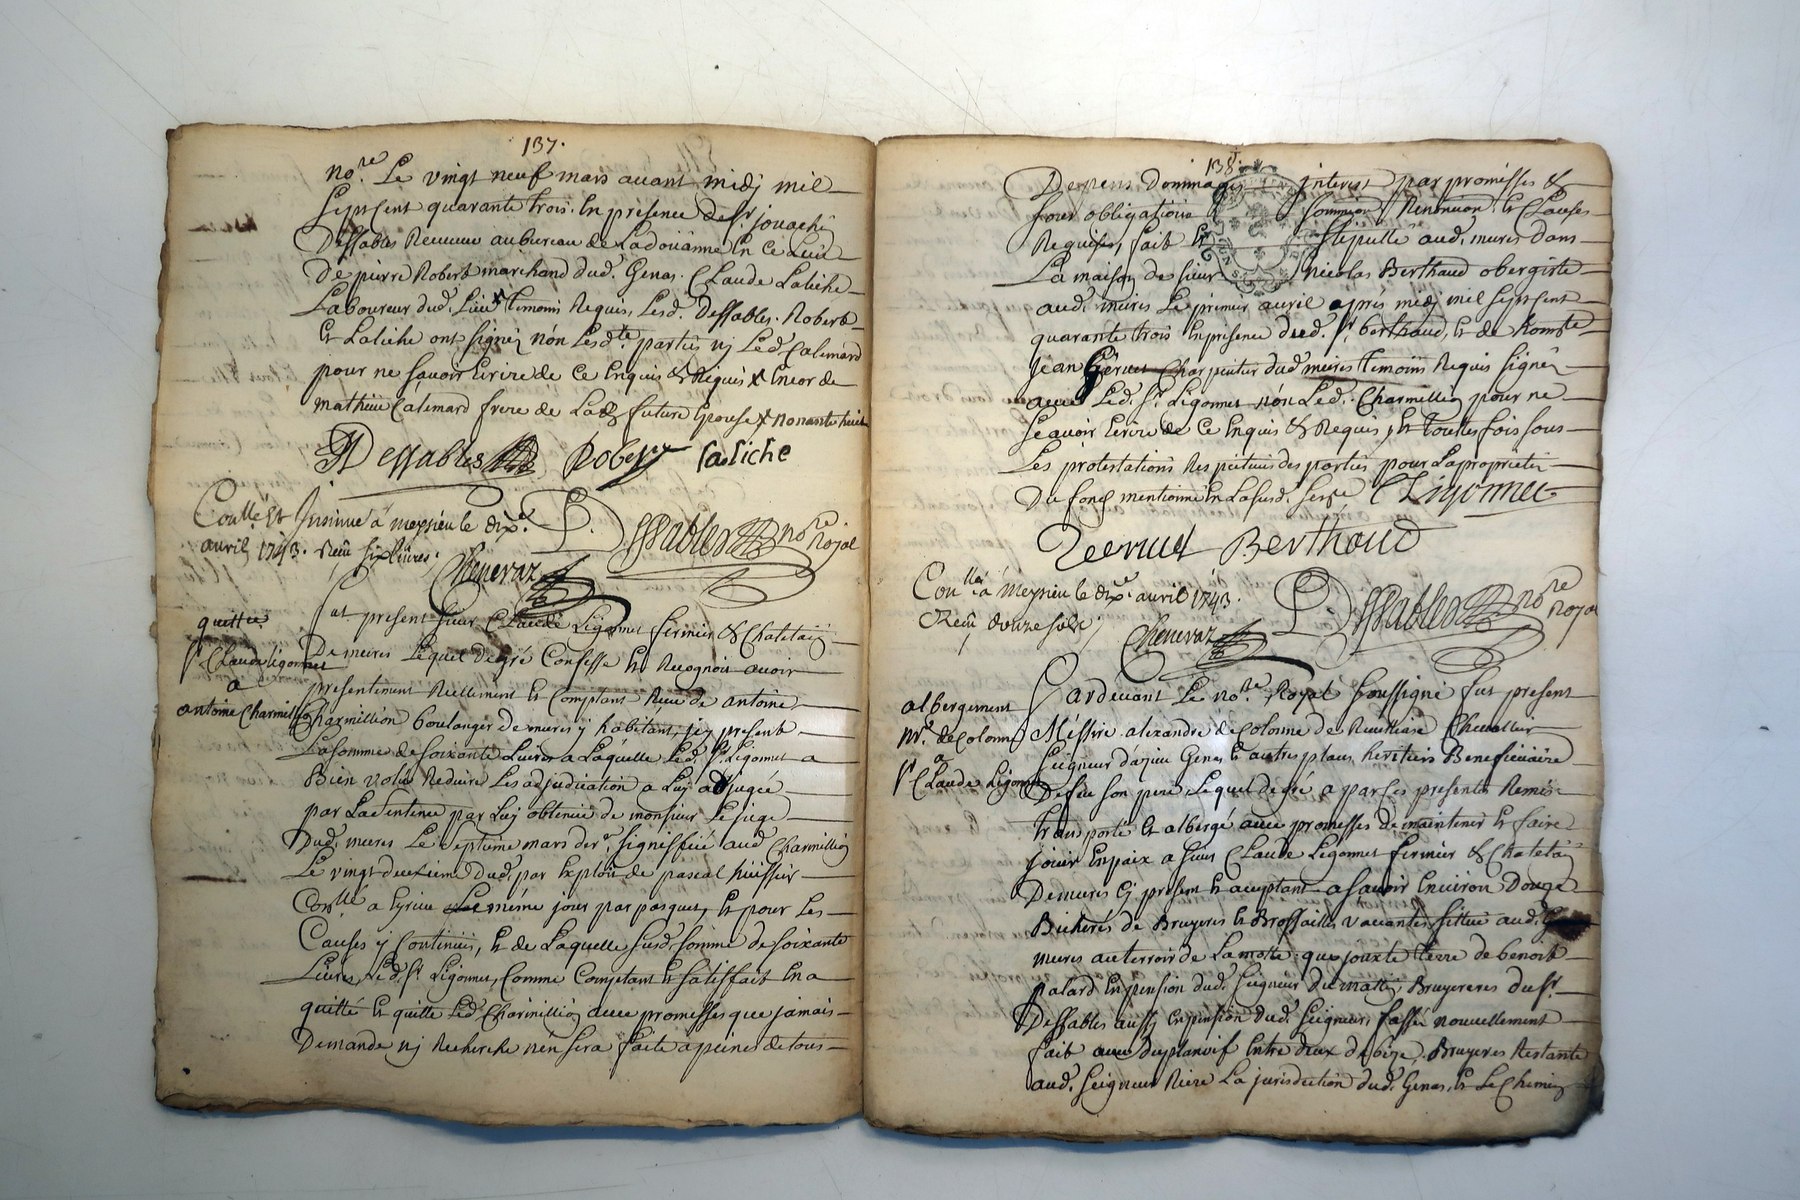 137.
no.re Le vingt neuf mars avant midj mil
sept cent quarante trois. En presence de sr. jouachin
Dessables Receveur au bureau de Ladoüanne En ce Lieu
De pierre Robert marchand dud. Genas. Claude Laliche
Laboureur dud. Lieu temoins Requis, Lesd. Dessables. Robert
Et Laliche ont signés nón Lesd.te parties nj Led. Calemard
pour ne savoir Ecrire de Ce Enquis & Requis x Encor de
mathieu Calemard frere de Lad. future Epouse x nonante huit
Dessables Robert laliche
Con.llé Et Insinué á meyzieu le dix.e
avril 1743. Reçu six Livres.
Cheneraz
P. Dessables no.re Royal
quittce
sr. Claude Ligonnet
a
antoine Charmillion
fut present sieur Claude Ligonnet fermier & Chatelain
De mures Lequel de gré Confesse Et Recognoit avoir
presentement Reellement Et Comptant Reçu de antoine
Charmillion boulanger de mures y habitant, icy present
La somme de soixante Livres a Láquelle Led. sr. Ligonnet a
Bien voulu Reduire Les adjudication a Luy adjugée
par La Sentence par Luy obtenüe de monsieur Le juge
Dud. mures Le septieme mars der.r signiffiée aud Charmillion
Le vingt deuxieme dud. par Exploit de pascal huissier
Con.llé a Eyrieu Le même jour par pasquet, Et pour Les
Causes y Contenües, Et de Laquelle susd. somme de soixante
Livres, Led. sr. Ligonnet, Comme Comptant Et satisfait En a
quitté Et quitte Led. Charmillion avec promesses que jamais
Demande nj Recherche nén sera faite a peines de tous
138.
Depens Dommages interest par promesses &
foux obligations soumission Renontion. Et Clauses
Requises, fait Et stipullé aud. mures dans
La maison de sieur nicolas Berthaud obergiste
aud. mures Le premier avril aprés midj mil sept cent
quarante trois En presence dud. sr. berthaud, Et de hon.te
jean Charpentier dud mures temoins Requis signés
avec Led. sr. Ligonnet nón Led. Charmillion pour ne
scavoir Ecrire de Ce Enquis & Requis, Et toutes fois sous
Les protestations Respectives des parties pour La proprieté
Du fond mentionné En La susd. Ligonnet
Berthaud
Con.llé á meyzieu le dix.e avril 1743.
Reçu douze sols,
Cheneraz
P. Dessables no.re Royal
albergement
mr. de Colonne
a
sr. Claude Ligonnet
Pardevant Le no.re Royal soussigné fut present
Méssire alexandre de Colonne de Chevallier
seigneur d'azieu Genas Et autres places heritier Beneficiaire
De feu son pere, Lequel de gré a par Ces presentes Remis
transporté Et albergé avec promesses de maintenir Et faire
jouir En paix a sieur Claude Ligonnet fermier & Chatelain
De mures Cy present Et acceptant a savoir Environ Douze
Bicherés de Bruyeres Et Brossailles vacantes sittué aud.
mures au terroir de La motte que jouxte terre de benoit
palard En pension dud. seigneur du matin, Bruyereres du sr.
Dessables aussy En pension dud. seigneur, fossé nouvellement
fait Entre deux de bize, Bruyeres Restante
aud. seigneur Riere La jurisdiction dud. Genas, Et Le Chemin